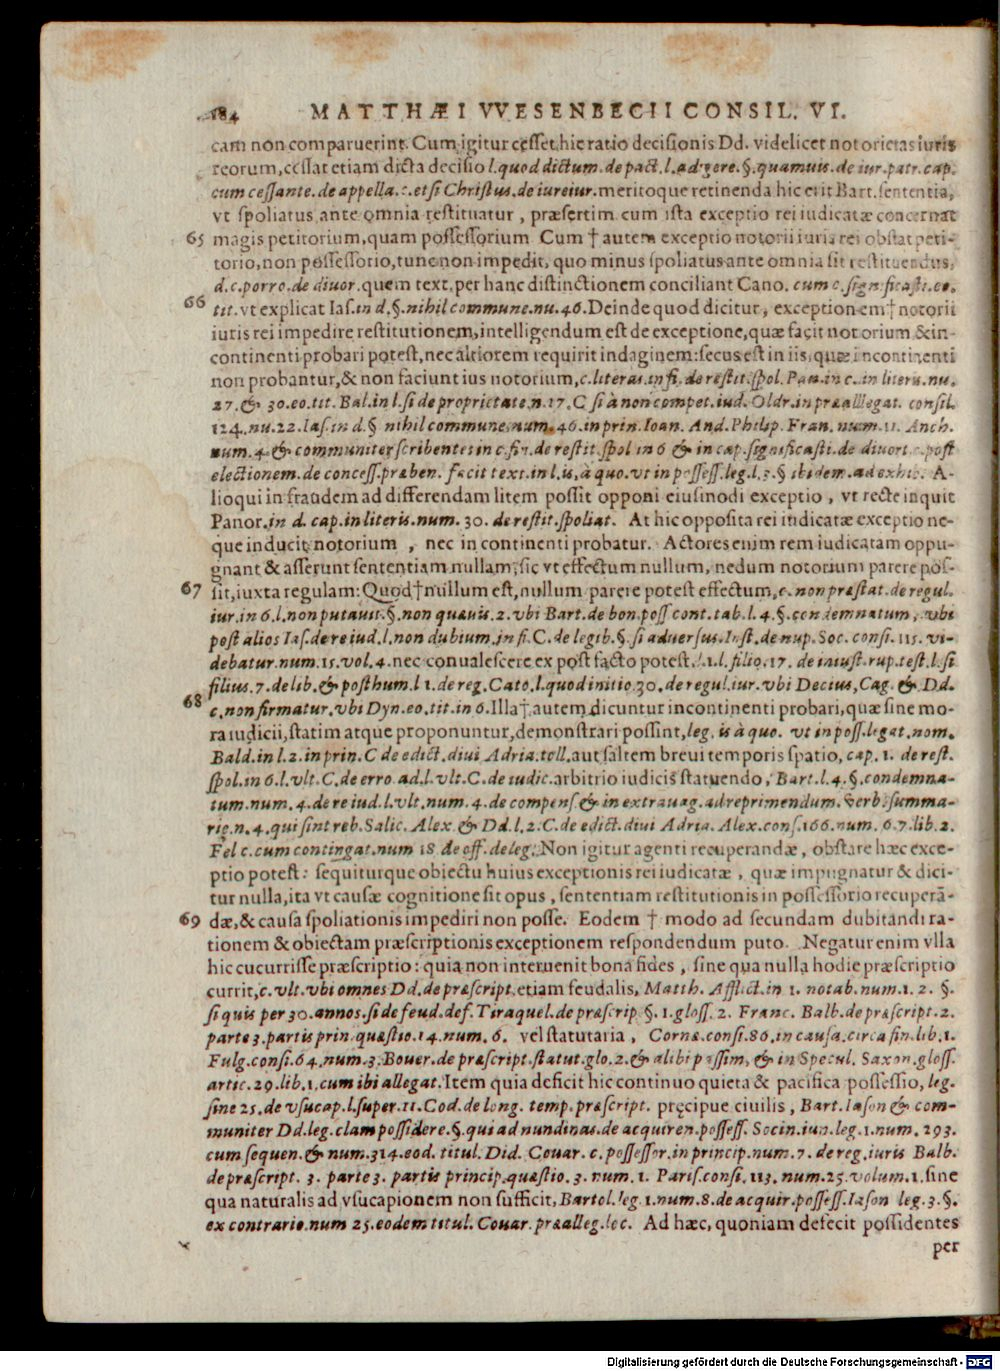 184 MATTHÆI VVESENBECII CONSIL. VI.
cam non comparuerint. Cum igitur cesset hic ratio decisionis Dd. videlicet notorietas iuris
reorum, cessat etiam dicta decisio l. quod dictum. de pact. l. adigere. §. quamuis. de iur. patr. cap.
cum cessante. de appella. c. etsi Christus. de iureiur. meritoque retinenda hic erit Bart. sententia,
vt spoliatus ante omnia restituatur, præsertim cum ista exceptio rei iudicatæ concernat
65 magis petitorium, quam possessorium Cum † autem exceptio notorii iuris rei obstat peti-
torio, non possessorio, tunc non impedit, quo minus spoliatus ante omnia sit restituendus,
d. c. porro. de diuor. quem text. per hanc distinctionem conciliant Cano. cum c. significasti. eo.
66 tit. vt explicat Ias. in d. §. nihil commune. nu. 46. Deinde quod dicitur, exceptionem † notorii
iuris rei impedire restitutionem, intelligendum est de exceptione, quæ facit notorium & in-
continenti probari potest, nec altiorem requirit indaginem: secus est in iis, quæ incontinenti
non probantur, & non faciunt ius notorium, c. literas. in fi. de restit. spol. Pan. in c. in litera. nu.
27. & 30. eo. tit. Bal. in l. si de proprietate. n. 17. C si à non compet. iud. Oldr. in præallegat. consil.
124. nu. 22. Ias. in d. § nihil commune. num. 46. in prin. Ioan. And. Philip. Fran. num. 11. Anch.
num. 4. & communiter scribentes in c. fin. de restit. spol in 6 & in cap. significasti. de diuort. c. post
electionem. de concess. præben. facit text. in l. is, à quo. vt in possess. leg. l. 3. § ibidem. ad exhib. A-
lioqui in fraudem ad differendam litem possit opponi eiusmodi exceptio, vt recte inquit
Panor. in d. cap. in literis. num. 30. de restit. spoliat. At hic opposita rei iudicatæ exceptio ne-
que inducit notorium, nec in continenti probatur. Actores enim rem iudicatam oppu-
gnant & asserunt sententiam nullam, sic vt effectum nullum, nedum notorium parere pos-
67 sit, iuxta regulam: Quod † nullum est, nullum parere potest effectum, c. non præstat. de regul.
iur. in 6. l. non putauit. §. non quæuis. 2. vbi Bart. de bon. poss cont. tab. l. 4. §. condemnatum, vbi
post alios Ias. de re iud. l. non dubium. in fi. C. de legib. §. si aduersus. Inst. de nup. Soc. consi. 115. vi-
debatur. num. 15. vol. 4. nec conualescere ex post facto potest. l. 1. l. filio. 17. de iniust. rup. test. l. si
filius. 7. de lib. & posthum. l 1. de reg. Cato. l. quod initio. 30. de regul. iur. vbi Decius, Cag. & Dd.
68 c. non firmatur. vbi Dyn. eo. tit. in 6. Illa † autem dicuntur incontinenti probari, quæ sine mo-
ra iudicii, statim atque proponuntur, demonstrari possint, leg. is à quo. vt in poss. legat. nom.
Bald. in l. 2. in prin. C de edict. diui Adria. toll. aut saltem brevi temporis spatio, cap. 1. de rest.
spol. in 6. l. vlt. C. de erro. ad. l. vlt. C. de iudic. arbitrio iudicis statuendo, Bart. l. 4. §. condemna-
tum. num. 4. de re iud. l. vlt. num. 4. de compens. & in extrauag. ad reprimendum. verb. summa-
rie. n. 4. qui sint reb. Salic. Alex. & Dd. l. 2. C. de edict. diui Adria. Alex. cons. 166. num. 6. 7. lib. 2.
Fel c. cum contingat. num 18 de off. deleg. Non igitur agenti recuperandæ, obstare hæc exce-
ptio potest: sequiturque obiectu huius exceptionis rei iudicatæ, quæ impugnatur & dici-
tur nulla, ita vt causæ cognitione sit opus, sententiam restitutionis in possessorio recuperã-
69 dæ, & causa spoliationis impediri non posse. Eodem † modo ad secundam dubitandi ra-
tionem & obiectam præscriptionis exceptionem respondendum puto. Negatur enim vlla
hic cucurrisse præscriptio: quia non interuenit bona fides, sine qua nulla hodie præscriptio
currit, c. vlt. vbi omnes Dd. de præscript. etiam feudalis, Matth. Afflict. in 1. notab. num. 1. 2. §.
si quis per 30. annos. si de feud. def. Tiraquel. de præscrip §. 1. gloss. 2. Franc. Balb. de præscript. 2.
parte 3. partis prin. quæstio. 14. num. 6. vel statutaria, Corne. consi. 86. in causa. circa fin. lib. 1.
Fulg. consi. 64. num. 3. Bouer. de præscript. statut. glo. 2. & alibi passim, & in Specul. Saxon. gloss.
artic. 29. lib. 1. cum ibi allegat. Item quia deficit hic continuo quieta & pacifica possessio, leg.
sine 25. de vsucap. l. super. 11. Cod. de long. temp. præscript. pręcipue ciuilis, Bart. Iason & com-
muniter Dd. leg. clam possidere. §. qui ad nundinas. de acquiren. possess. Socin. iun. leg. 1. num. 293.
cum sequen. & num. 314. eod. titul. Did. Couar. c. possessor. in princip. num. 7. de reg. iuris Balb.
de præscript. 3. parte 3. partis princip. quæstio. 3. num. 1. Paris. consi. 113. num. 25. volum. 1. sine
qua naturalis ad vsucapionem non sufficit, Bartol. leg. 1. num. 8. de acquir. possess. Iason leg. 3. §.
ex contrario. num 25. eodem titul. Couar. præalleg. loc. Ad hæc, quoniam defecit possidentes
per
Digitalisierung gefördert durch die Deutsche Forschungsgemeinschaft - DFG